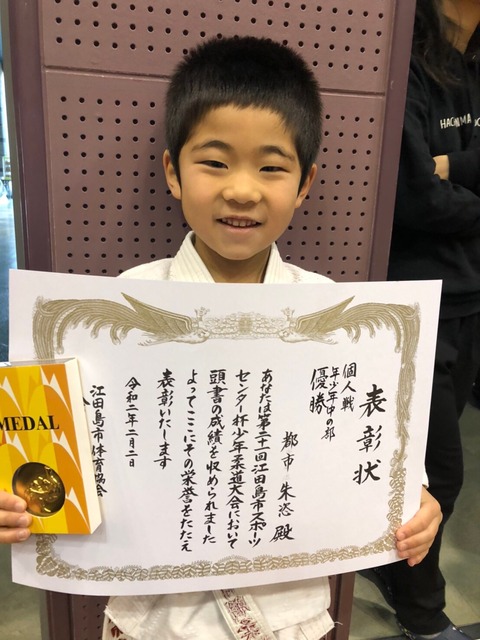 表彰状
個人戦
年少年中の部
優勝
都市 朱
殿
あなたは第二十一回江田島市スポーツ
センター杯少年柔道大会において
頭書の成績を収められました
よってここにその栄誉をたたえ
表彰いたします
令和二年二月二日
江田島市体育協会
MEDAL